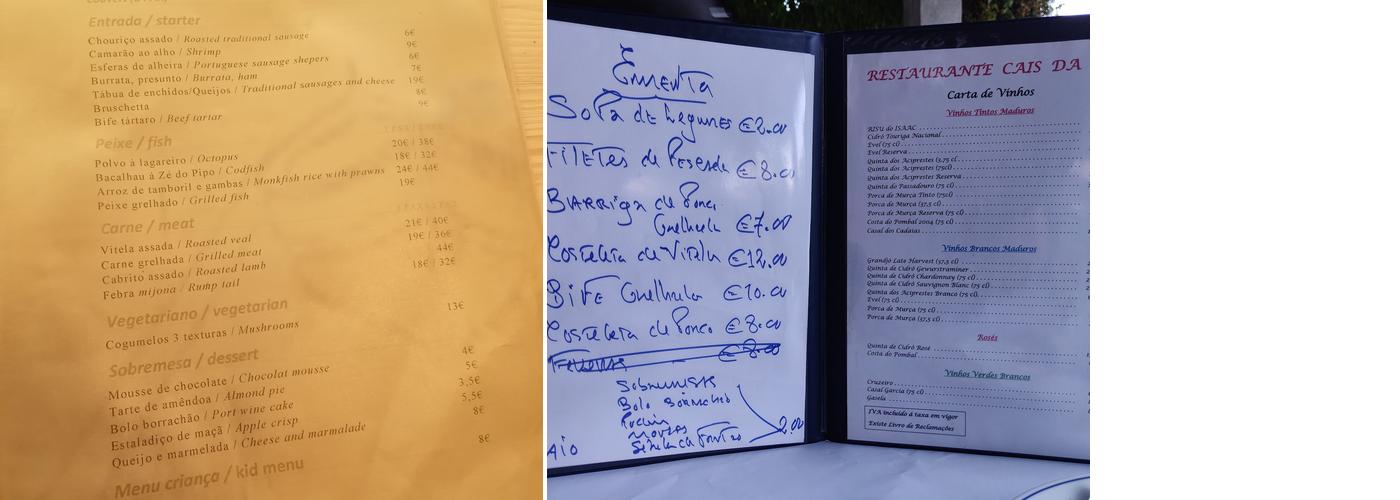 Entrada / starter
Chouriço assado / Roasted traditional sausage 6€
Camarão ao alho / Shrimp 9€
Esferas de alheira / Portuguese sausage shepers 6€
Burrata, presunto / Burrata, ham 7€
Tábua de enchidos/Queijos / Traditional sausages and cheese 19€
Bruschetta 8€
Bife tártaro / Beef tartar 9€
Peixe / fish
Polvo à lagareiro / Octopus 20€ / 38€
Bacalhau à Zé do Pipo / Codfish 18€ / 32€
Arroz de tamboril e gambas / Monkfish rice with prawns 24€ / 44€
Peixe grelhado / Grilled fish 19€
Carne / meat
Vitela assada / Roasted veal 21€ / 40€
Carne grelhada / Grilled meat 19€ / 36€
Cabrito assado / Roasted lamb 44€
Febra mijona / Rump tail 18€ / 32€
Vegetariano / vegetarian
Cogumelos 3 texturas / Mushrooms 13€
Sobremesa / dessert
Mousse de chocolate / Chocolat mousse 4€
Tarte de amêndoa / Almond pie 5€
Bolo borrachão / Port wine cake 3,5€
Estaladiço de maçã / Apple crisp 5,5€
Queijo e marmelada / Cheese and marmalade 8€
Menu criança / kid menu 8€
Ementa
Sopa de Legumes €2.00
Filetes de Pescada €8.00
Barriga de Porco
Grelhada €7.00
Costeleta de Vitela €12.00
Bife Grelhado €10.00
Costeleta de Porco €8.00
€8.00
Sobremesas
Bolo Borrachão
Pudim
Mousse
Salada Frutas 2.00
RESTAURANTE CAIS DA
Carta de Vinhos
Vinhos Tintos Maduros
RISU do ISAAC
Cidrô Touriga Nacional
Evel (75 cl)
Evel Reserva
Quinta dos Aciprestes (3,75 cl
Quinta dos Aciprestes (75cl)
Quinta dos Aciprestes Reserva
Quinta do Passadouro (75 cl)
Porca de Murça Tinto (75cl)
Porca de Murça (37,5 cl)
Porca de Murça Reserva (75 cl)
Costa do Pombal 2004 (75 cl)
Casal dos Cadaias
Vinhos Brancos Maduros
Grandjó Late Harvest (37,5 cl)
Quinta de Cidrô Gewurstraminer
Quinta de Cidrô Chardonnay (75 cl)
Quinta de Cidrô Sauvignon Blanc (75 cl)
Quinta dos Aciprestes Branco (75 cl)
Evel (75 cl)
Porca de Murça (75 cl)
Porca de Murça (37,5 cl)
Rosés
Quinta de Cidrô Rosé
Costa do Pombal
Vinhos Verdes Brancos
Cruzeiro
Casal Garcia (75 cl)
Gasela
IVA incluído à taxa em vigor
Existe Livro de Reclamações